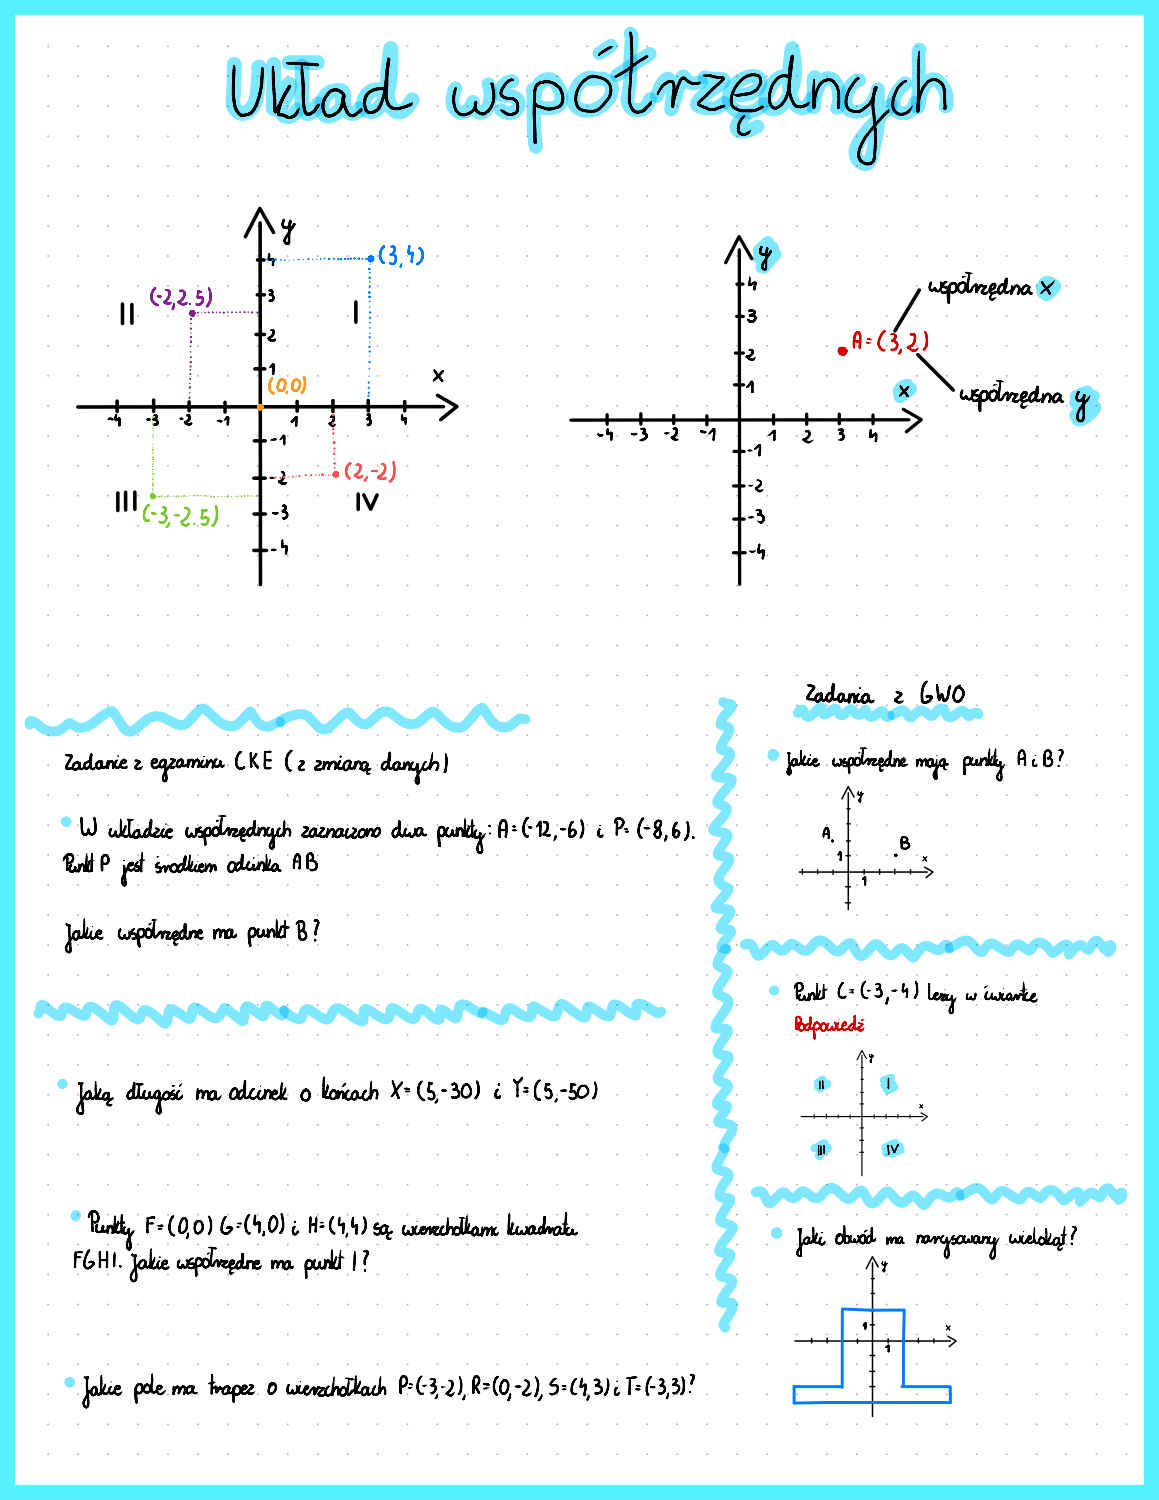 Układ współrzędnych
y
(3,4)
4
(-2,2.5)
3
II
I
2
1
x
(0,0)
-4 -3 -2 -1 1 2 3 4
-1
-2
(2,-2)
III
IV
(-3,-2.5)
-3
-4
y
współrzędna x
4
3
A=(3,2)
2
1
x
współrzędna y
-4 -3 -2 -1 1 2 3 4
-1
-2
-3
-4
Zadanie z egzaminu CKE (z zmianą danych)
W układzie współrzędnych zaznaizono dwa punkty: A=(-12,-6) i P=(-8,6).
Punkt P jest środkiem odcinka AB
Jakie współrzędne ma punkt B?
Jaką długość ma odcinek o końcach X=(5,-30) i Y=(5,-50)
Punkty F=(0,0) G=(4,0) i H=(4,4) są wierzchołkami kwadratu
FGHI. Jakie współrzędne ma punkt I?
Jakie pole ma trapez o wierzchołkach P=(-3,-2), R=(0,-2), S=(4,3) i T=(-3,3)?
Zadania z GWO
Jakie współrzędne mają punkty A i B?
y
A
B
1
x
1
Punkt C=(-3,-4) leży w ćwiartce
Podpowiedź
y
II
I
x
III
IV
Jaki obwód ma narysowany wielokąt?
y
1
x
1